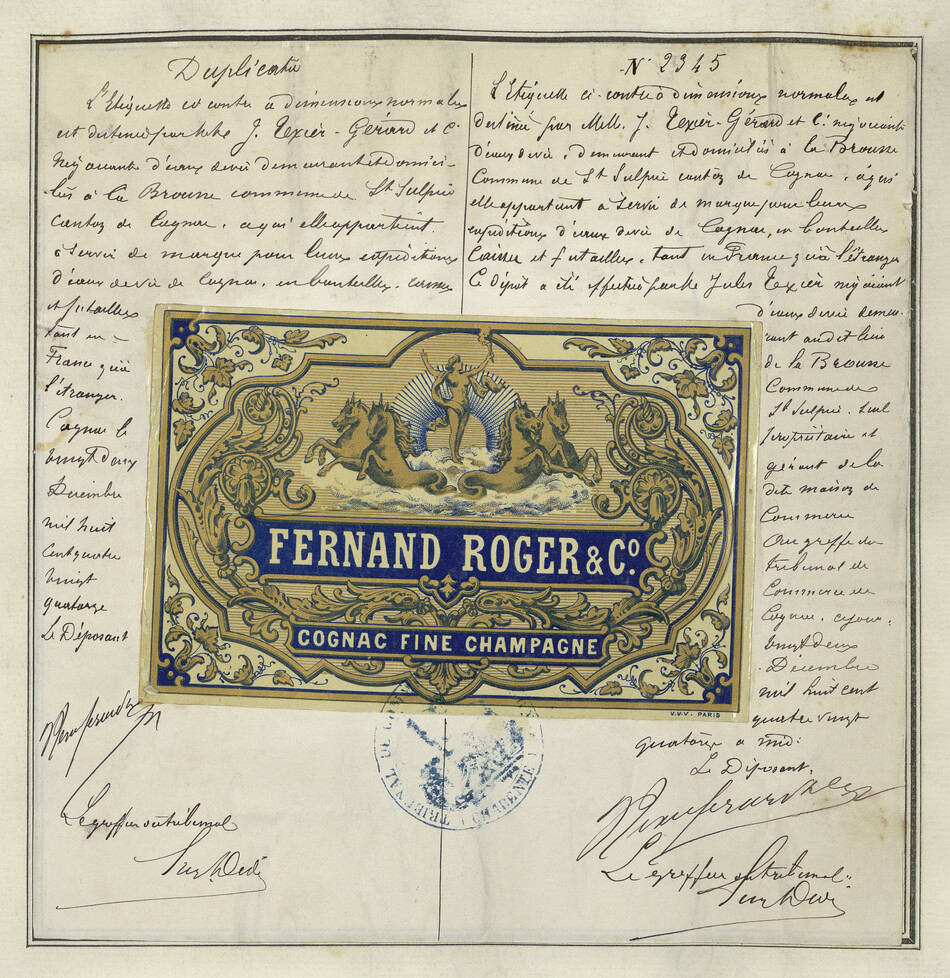 Duplicata
L'Etiquette ci contre a dimensions normales
est destinée par MM. J. Texier-Gérard et Cie
négociants d'eaux de vie demeurant et domici-
liés à La Brousse commune de St Sulpice
canton de Cognac, à qui elle appartient.
à servir de marque pour leurs expéditions
d'eaux de vie de Cognac, en bouteilles, caisses
et futailles
tant en
France qu'à
l'étranger.
Cognac le
vingt deux
Décembre
mil huit
cent quatre
vingt
quatorze
Le Déposant
Le greffier du tribunal
N° 2345
L'Etiquette ci-contre à dimensions normales est
destinée par MM. J. Texier-Gérard et Cie négociants
d'eaux de vie, demeurant et domiciliés à la Brousse
Commune de St Sulpice canton de Cognac, à qui
elle appartient à servir de marque pour leurs
expéditions d'eaux de vie de Cognac, en bouteilles
Caisses et futailles, tant en France qu'à l'étranger
Ce dépôt a été effectué par Mr Jules Texier négociant
d'eaux de vie demeu-
rant au dit lieu
de la Brousse
Commune de
St Sulpice, seul
propriétaire et
gérant de la
dite maison de
Commerce
Au greffe du
tribunal de
Commerce de
Cognac, ce jour,
vingt deux
Décembre
mil huit cent
quatre vingt
quatorze a midi
Le Déposant,
Le greffier du tribunal
FERNAND ROGER & Co.
COGNAC FINE CHAMPAGNE
V.V.V. PARIS
TRIBUNAL DE
CHARENTE